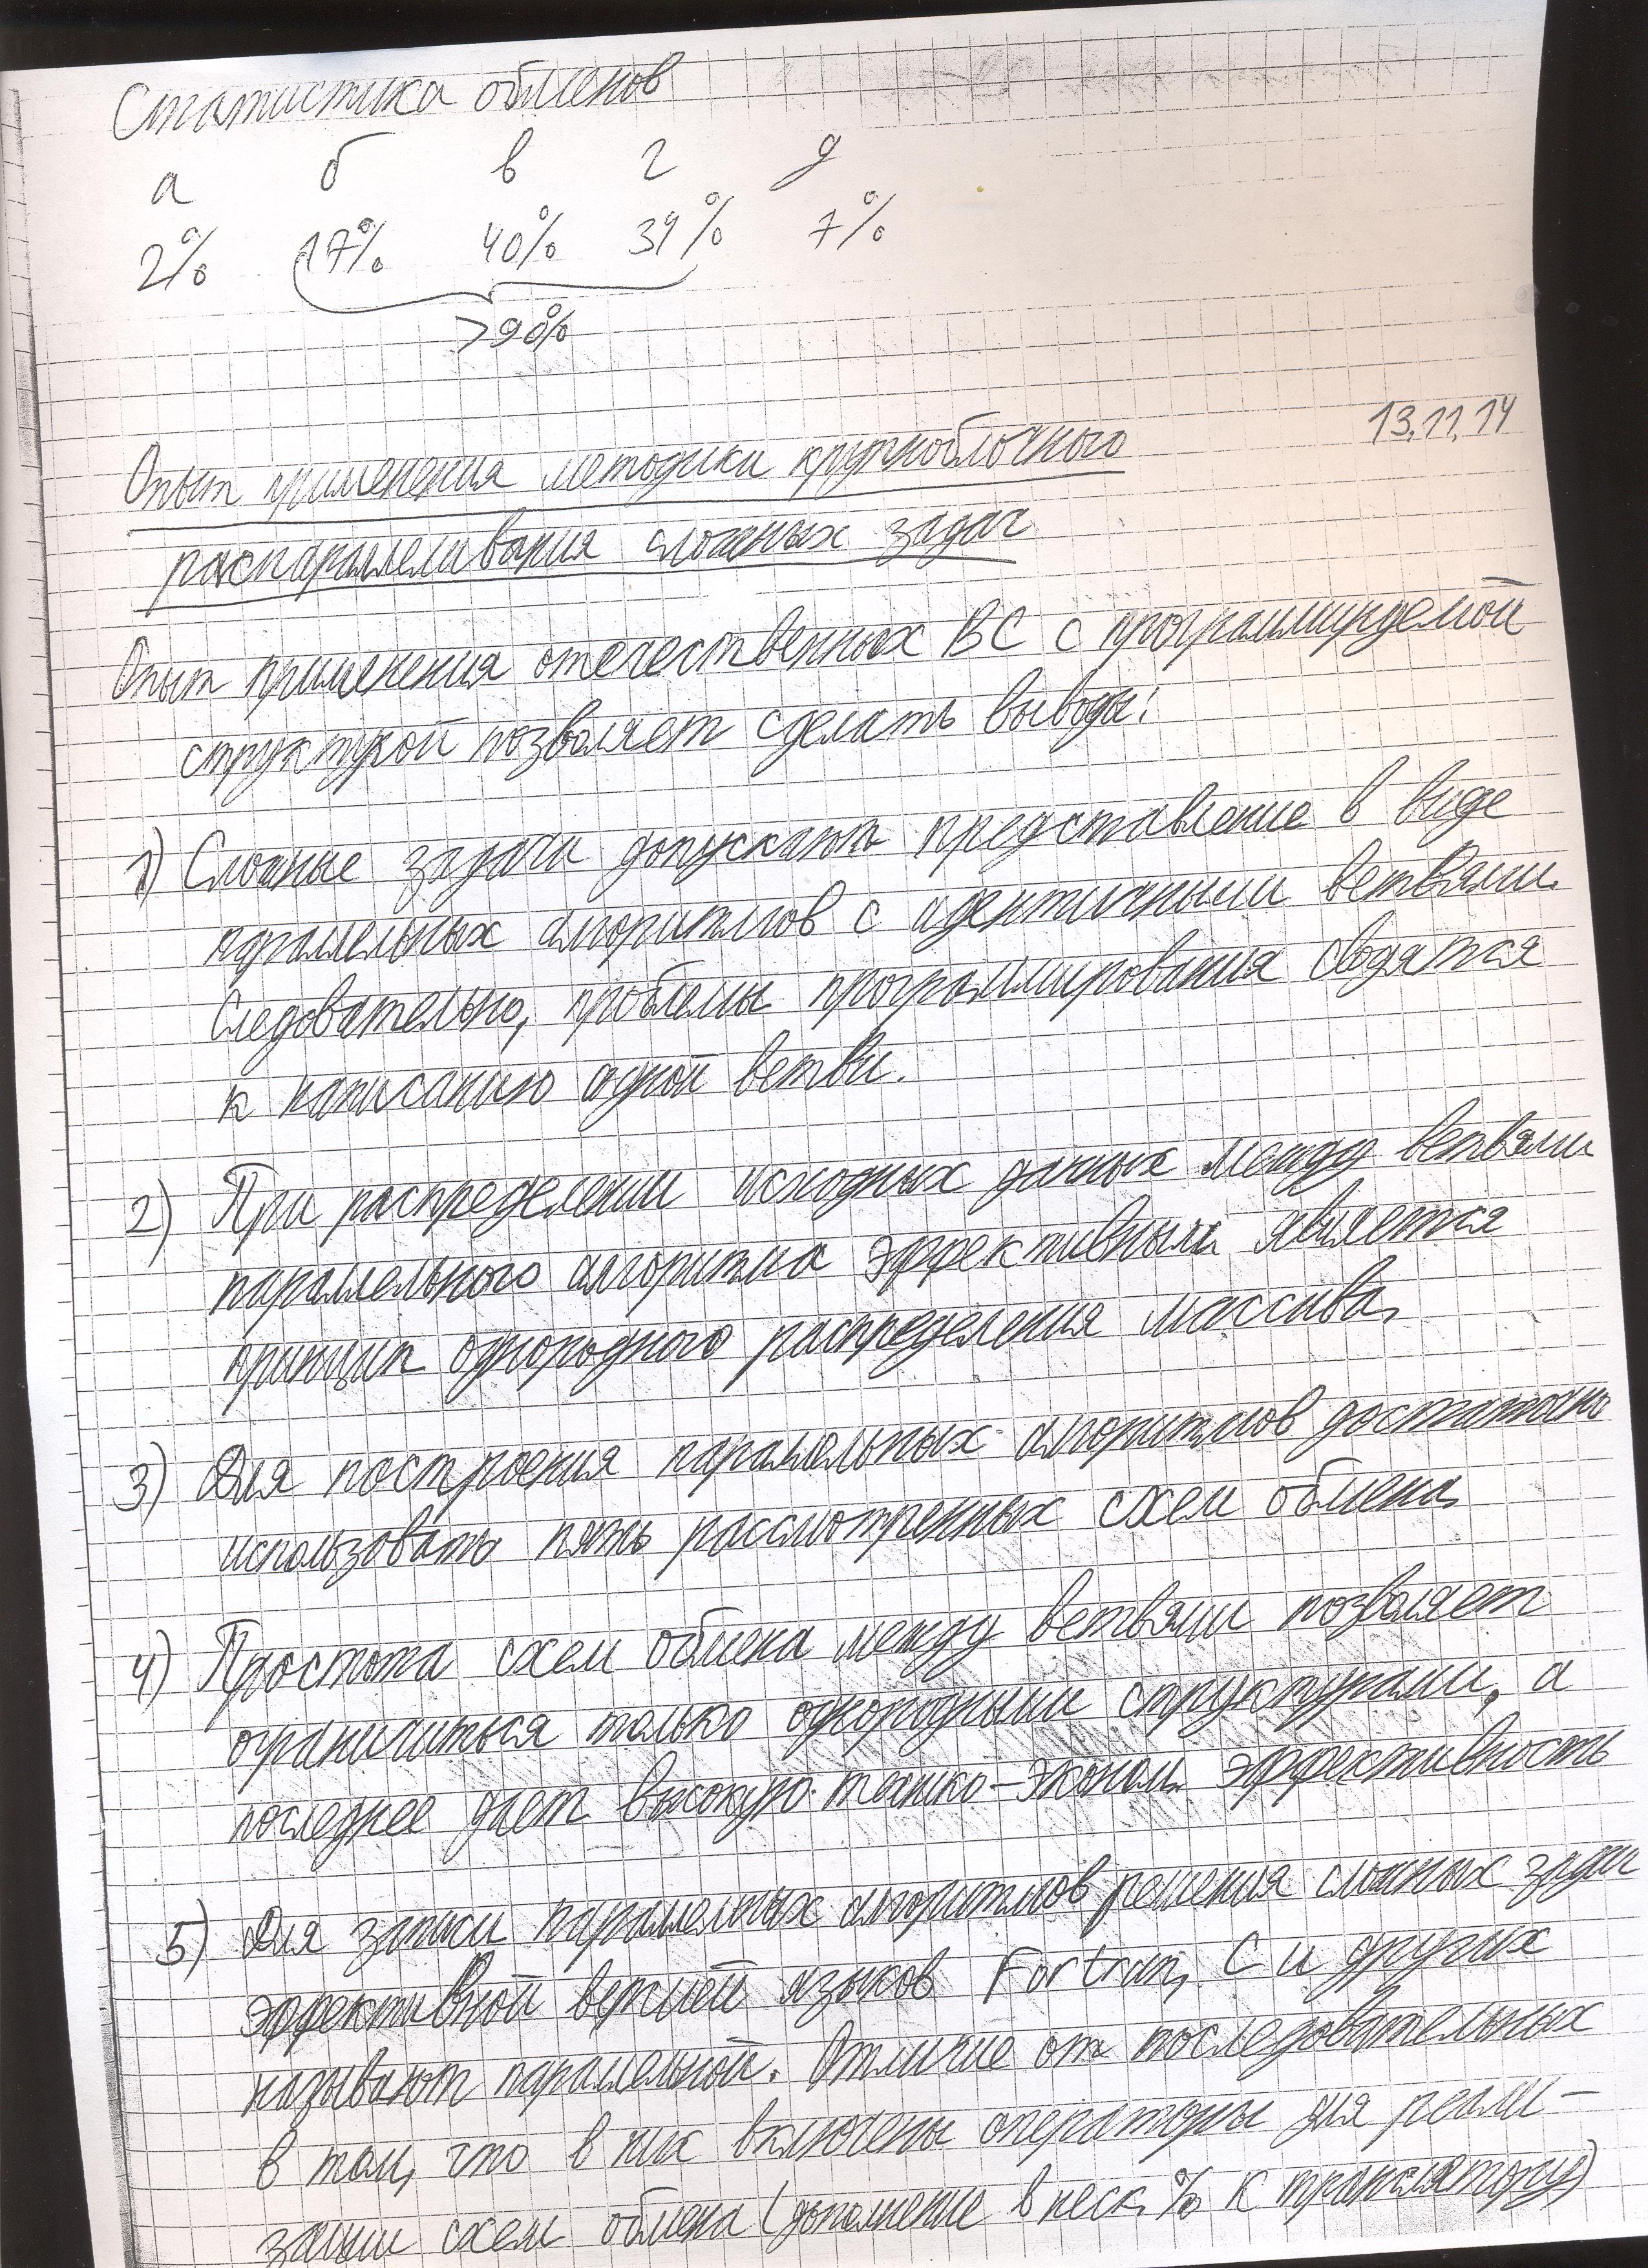 Статистика обменов
а б в г д
2% 17% 40% 34% 7%
>90%
13.11.14
Опыт применения методики крупноблочного
распараллеливания сложных задач
Опыт применения отечественных ВС с программируемой
структурой позволяет сделать выводы:
1) Сложные задачи допускают представление в виде
параллельных алгоритмов с идентичными ветвями.
Следовательно, проблемы программирования сводятся
к написанию одной ветви.
2) При распределении исходных данных между ветвями
параллельного алгоритма эффективным является
принцип однородного распределения массива.
3) Для построения параллельных алгоритмов достаточно
использовать пять рассмотренных схем обмена.
4) Простота схем обмена между ветвями позволяет
ограничиться только однородными структурами, а
последнее дает высокую технико-эконом. эффективность
5) Для записи параллельных алгоритмов решения сложных задач
эффективной версией языков Fortran, C и других
называют параллельной. Отличие от последовательных
в том, что в них включены операторы для реали-
зации схем обмена (дополнение в неск. % к транслятору)